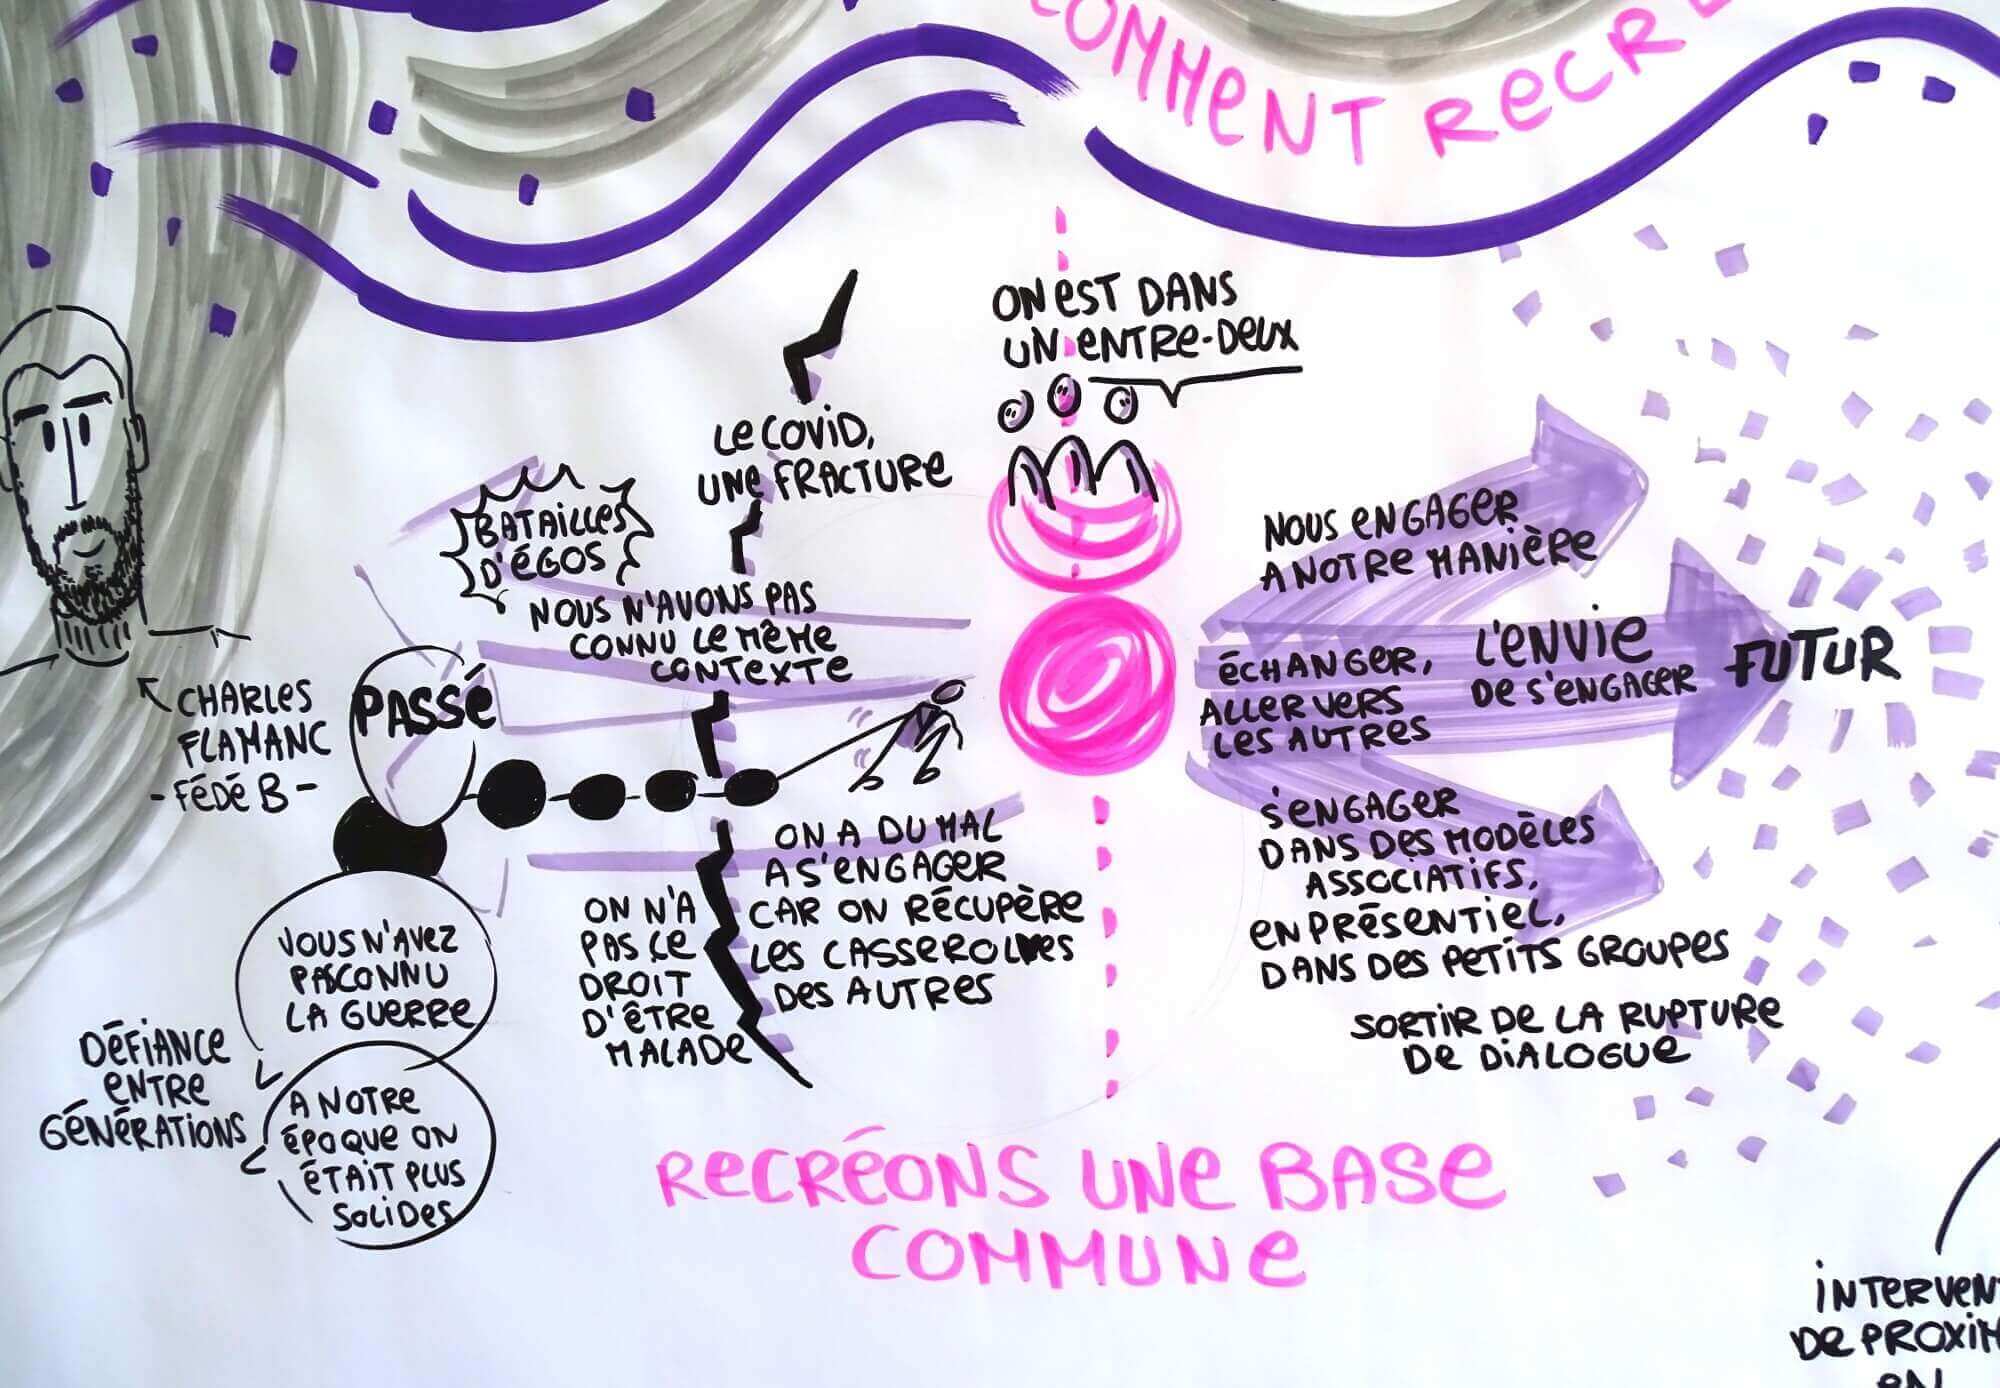 COMMENT RECRÉ
ON EST DANS
UN ENTRE-DEUX
LE COVID,
UNE FRACTURE
BATAILLES
D'ÉGOS
NOUS N'AVONS PAS
CONNU LE MÊME
CONTEXTE
CHARLES
FLAMANC
- FÉDÉ B -
PASSÉ
NOUS ENGAGER
A NOTRE MANIÈRE
ÉCHANGER,
ALLER VERS
LES AUTRES
L'ENVIE
DE S'ENGAGER
FUTUR
S'ENGAGER
DANS DES MODÈLES
ASSOCIATIFS,
EN PRÉSENTIEL,
DANS DES PETITS GROUPES
SORTIR DE LA RUPTURE
DE DIALOGUE
ON A DU MAL
A S'ENGAGER
CAR ON RÉCUPÈRE
LES CASSEROLES
DES AUTRES
ON N'A
PAS LE
DROIT
D'ÊTRE
MALADE
VOUS N'AVEZ
PAS CONNU
LA GUERRE
DÉFIANCE
ENTRE
GÉNÉRATIONS
A NOTRE
ÉPOQUE ON
ÉTAIT PLUS
SOLIDES
RECRÉONS UNE BASE
COMMUNE
INTERVEN
DE PROXIM
EN